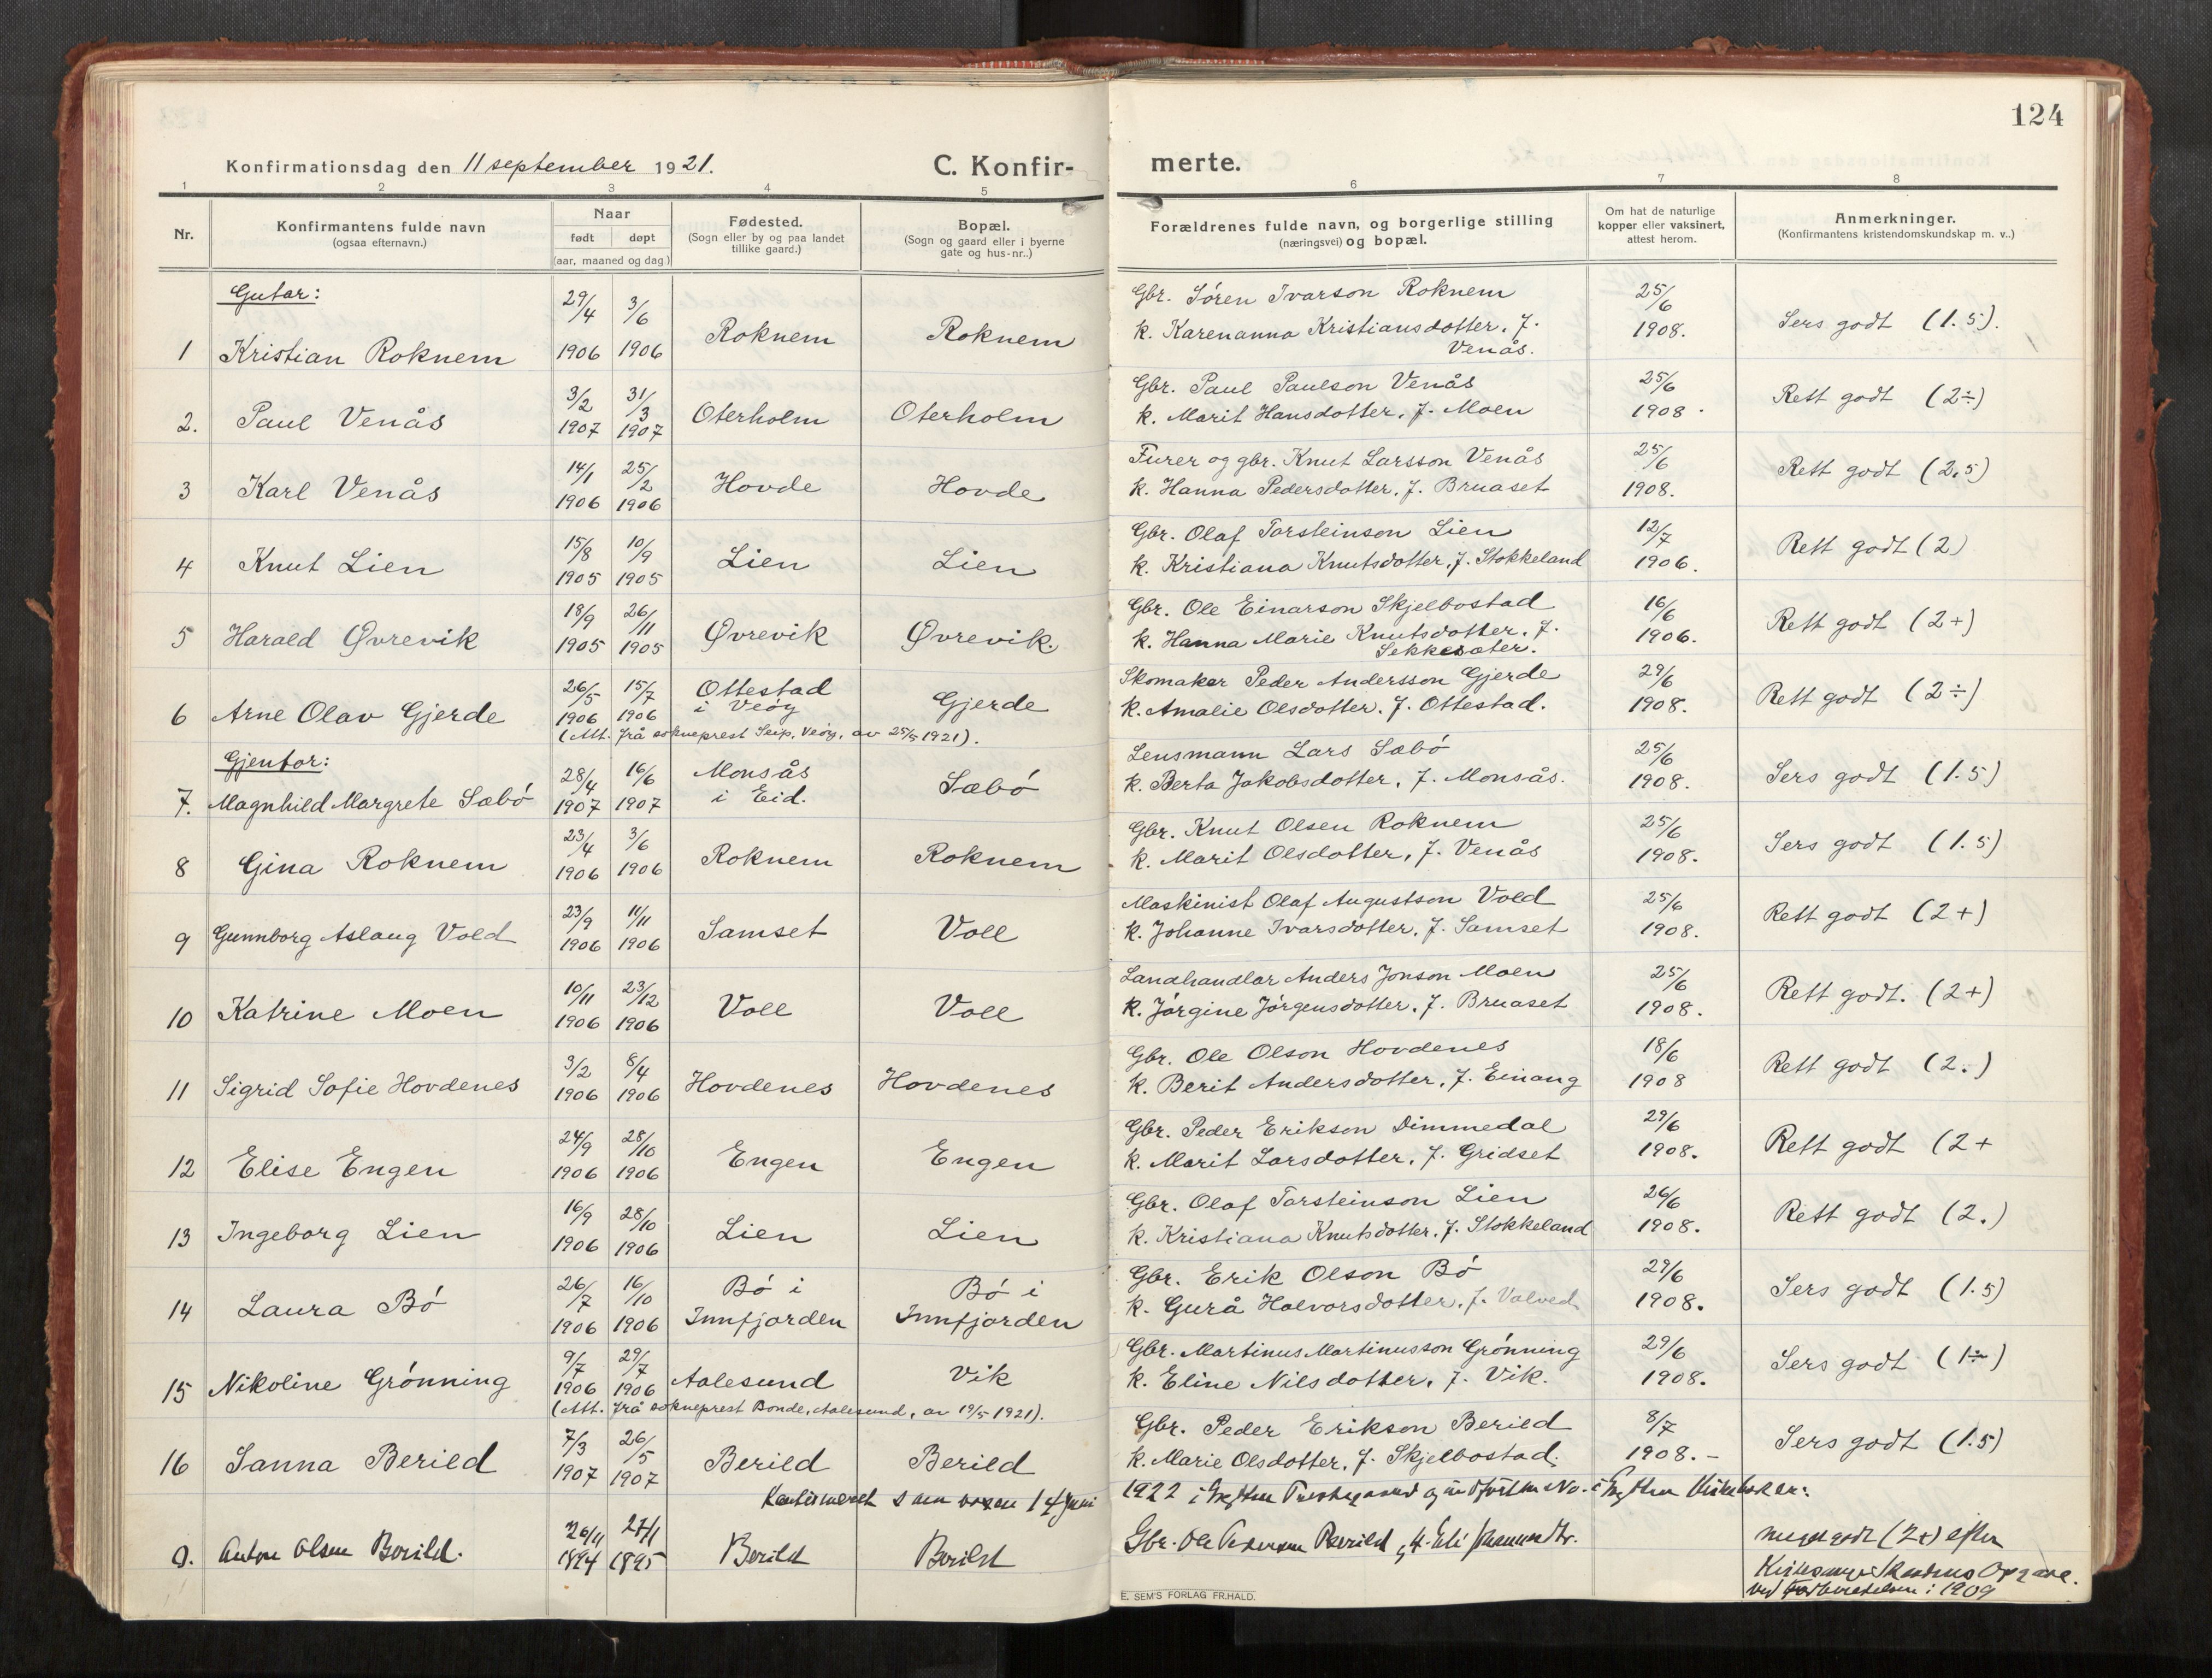 124
Konfirmationsdag den 11 september 1921.
C. Konfir-
merte.
1 2 3 4 5 6 7 8
Nr.
Konfirmantens fulde navn
(ogsaa efternavn.)
Naar
født døpt
(aar, maaned og dag)
Fødested.
(Sogn eller by og paa landet
tillike gaard.)
Bopæl.
(Sogn og gaard eller i byerne
gate og hus-nr..)
Forældrenes fulde navn, og borgerlige stilling
(næringsvei) og bopæl.
Om hat de naturlige
kopper eller vaksinert,
attest herom.
Anmerkninger.
(Konfirmantens kristendomskundskap m. v..)
Gutar:
1 Kristian Roknem 29/4 1906 3/6 1906 Roknem Roknem
Gbr. Søren Ivarson Roknem
k. Karenanna Kristiansdotter. f.
Venås.
25/6 1908. Sers godt (1.5).
2. Paul Venås 3/2 1907 31/3 1907 Oterholm Oterholm
Gbr. Paul Paulson Venås
k. Marit Hansdotter. f. Moen
25/6 1908. Rett godt (2÷)
3 Karl Venås 14/1 1906 25/2 1906 Hovde Hovde
Furer og gbr. Knut Larsson Venås
k. Hanna Pedersdotter. f. Bruaset
25/6 1908. Rett godt (2.5)
4 Knut Lien 15/8 1905 10/9 1905 Lien Lien
Gbr. Olaf Torsteinson Lien
k. Kristiana Knutsdotter. f. Stokkeland
12/7 1906. Rett godt (2)
5 Harald Øvrevik 18/9 1905 26/11 1905 Øvrevik Øvrevik.
Gbr. Ole Einarson Skjelbostad
k. Hanna Marie Knutsdotter. f.
Sekkesæter.
16/6 1906. Rett godt (2+)
6 Arne Olav Gjerde 26/5 1906 15/7 1906 Ottestad i Veøy Gjerde
(Att. frå sokneprest Seip, Veøy, av 25/5 1921).
Skomaker Peder Andersson Gjerde
k. Amalie Olsdotter. f. Ottestad.
29/6 1908. Rett godt (2÷)
Gjentor:
7. Magnhild Margrete Sæbó 28/4 1907 16/6 1907 Monsås i Eid. Sæbó
Lensmann Lars Sæbó
k. Berta Jakobsdotter. f. Monsås.
25/6 1908. Sers godt (1.5)
8 Gina Roknem 23/4 1906 3/6 1906 Roknem Roknem
Gbr. Knut Olsen Roknem
k. Marit Olsdotter, f. Venås
25/6 1908. Sers godt (1.5)
9 Gunnborg Aslaug Vold 23/9 1906 11/11 1906 Samset Voll
Maskinist Olaf Augustson Vold
k. Johanne Ivarsdotter. f. Samset
25/6 1908. Rett godt (2+)
10 Katrine Moen 10/11 1906 23/12 1906 Voll Voll
Landhandlar Anders Jonson Moen
k. Jórgine Jórgensdotter. f. Bruaset
25/6 1908. Rett godt. (2+)
11 Sigrid Sofie Hovdenes 3/2 1906 8/4 1906 Hovdenes Hovdenes
Gbr. Ole Olson Hovdenes
k. Berit Andersdotter. f. Einang
18/6 1908 Rett godt (2.)
12 Elise Engen 24/9 1906 28/10 1906 Engen Engen
Gbr. Peder Erikson Dimmedal
k. Marit Larsdotter. f. Gridset
29/6 1908. Rett godt (2+
13 Ingeborg Lien 16/9 1906 28/10 1906 Lien Lien
Gbr. Olaf Torsteinson Lien
k. Kristiana Knutsdotter. f. Stokkeland
26/6 1908. Rett godt (2.)
14 Laura Bó 26/7 1906 16/10 1906 Bó i Innfjorden Bó i Innfjorden
Gbr. Erik Olson Bó
k. Gurå Halvorsdotter. f. Valved
29/6 1908. Sers godt (1.5)
15 Nikoline Grónning 9/7 1906 29/7 1906 Aalesund Vik
(Att. frå sokneprest Bonde, Aalesund, av 19/5 1921).
Gbr. Martinus Martinusson Grónning
k. Eline Nilsdotter. f. Vik.
29/6 1908. Sers godt (1÷)
16 Sanna Berild 7/3 1907 26/5 1907 Berild Berild
Gbr. Peder Erikson Berild
k. Marie Olsdotter. f. Skjelbostad.
8/7 1908.- Sers godt (1.5)
14 Juni
1922 i No. i
0. Anton Olsen Berild. 26/11 1894 27/1 1895 Berild Berild
Gbr. Ole Berild
godt (2+) efter
i 1909
E. SEM'S FORLAG FR.HALD.